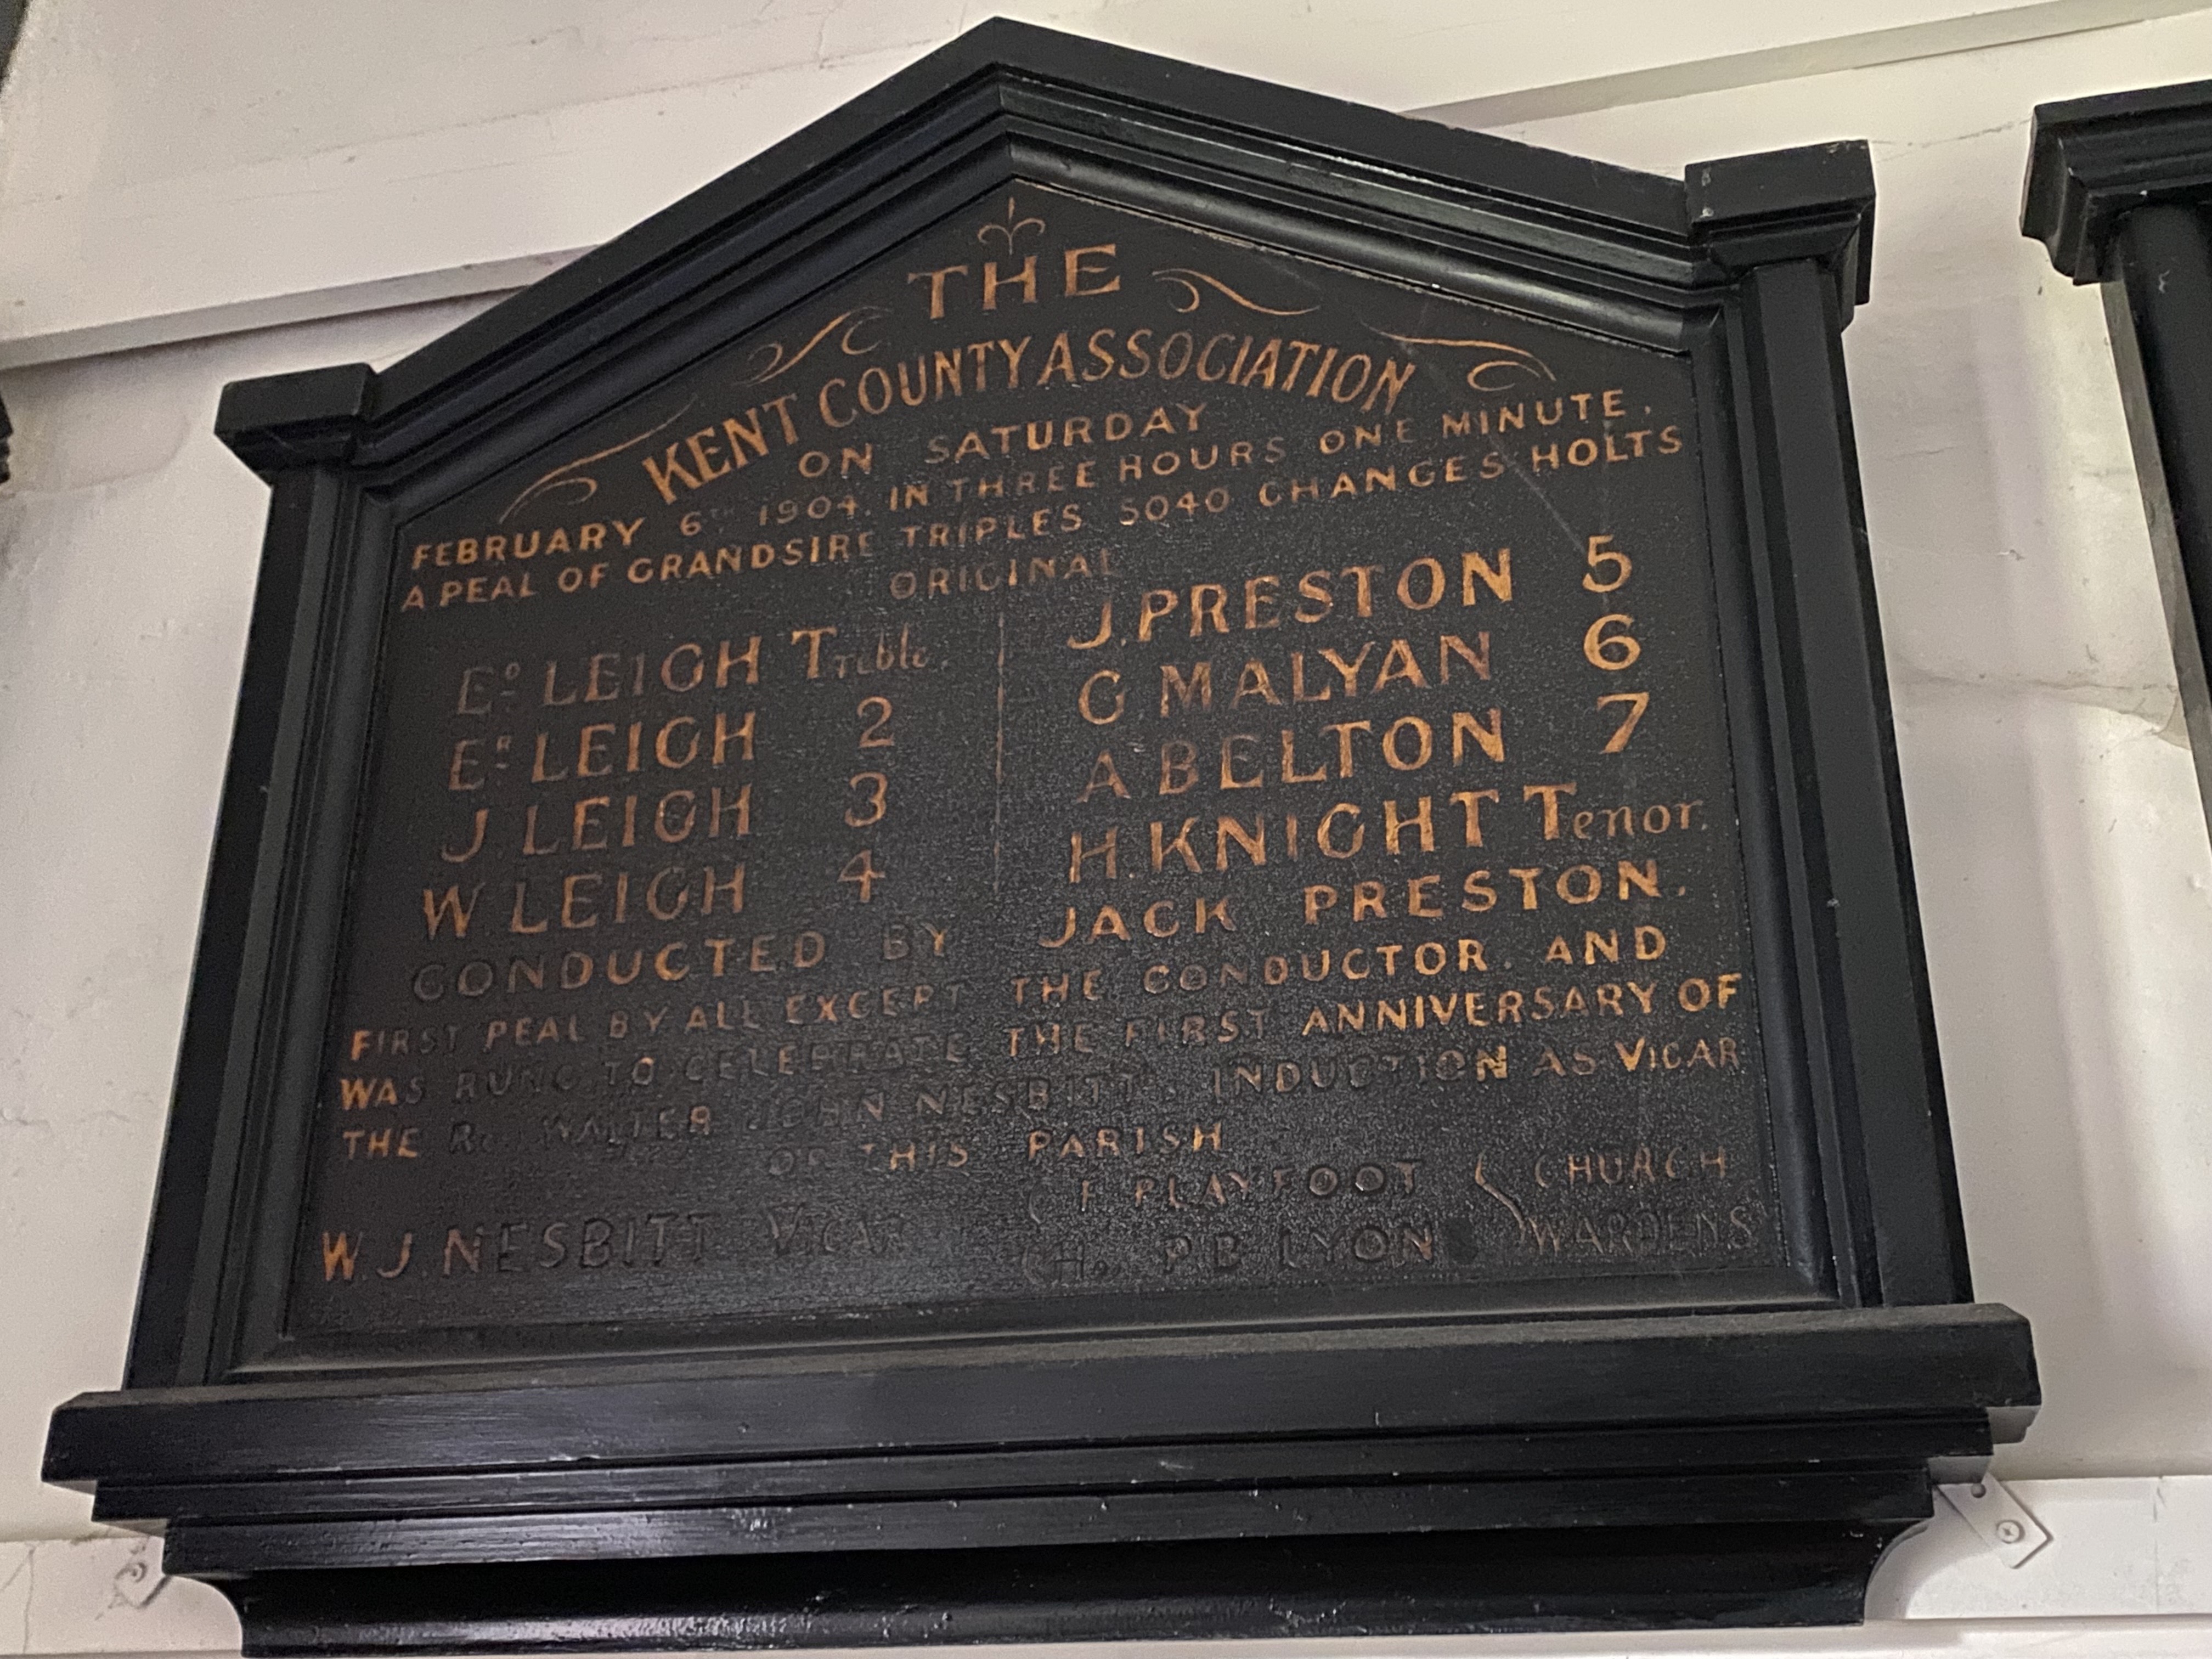 THE
KENT COUNTY ASSOCIATION
ON SATURDAY
FEBRUARY 6TH 1904. IN THREE HOURS ONE MINUTE.
A PEAL OF GRANDSIRE TRIPLES 5040 CHANGES HOLTS
ORIGINAL
Eº LEIGH Treble.
Eᴿ LEIGH 2
J. LEIGH 3
W. LEIGH 4
J. PRESTON 5
G MALYAN 6
A BELTON 7
H. KNIGHT Tenor.
CONDUCTED BY JACK PRESTON.
FIRST PEAL BY ALL EXCEPT THE CONDUCTOR. AND
WAS RUNG TO CELEBRATE THE FIRST ANNIVERSARY OF
THE Rev WALTER JOHN NESBITT. INDUCTION AS VICAR
OF THIS PARISH
W. J. NESBITT VICAR
F PLAYFOOT
H. P B LYON
CHURCH
WARDENS